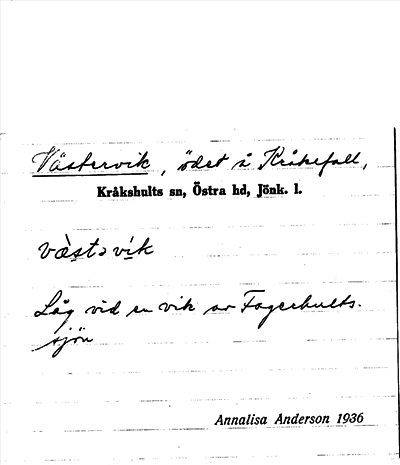 Västervik, ödet å Kråkefall,
Kråkshults sn, Östra hd, Jönk. l.
væ̀stəvík
Låg vid en vik av Fagerhults-
sjön
Annalisa Anderson 1936